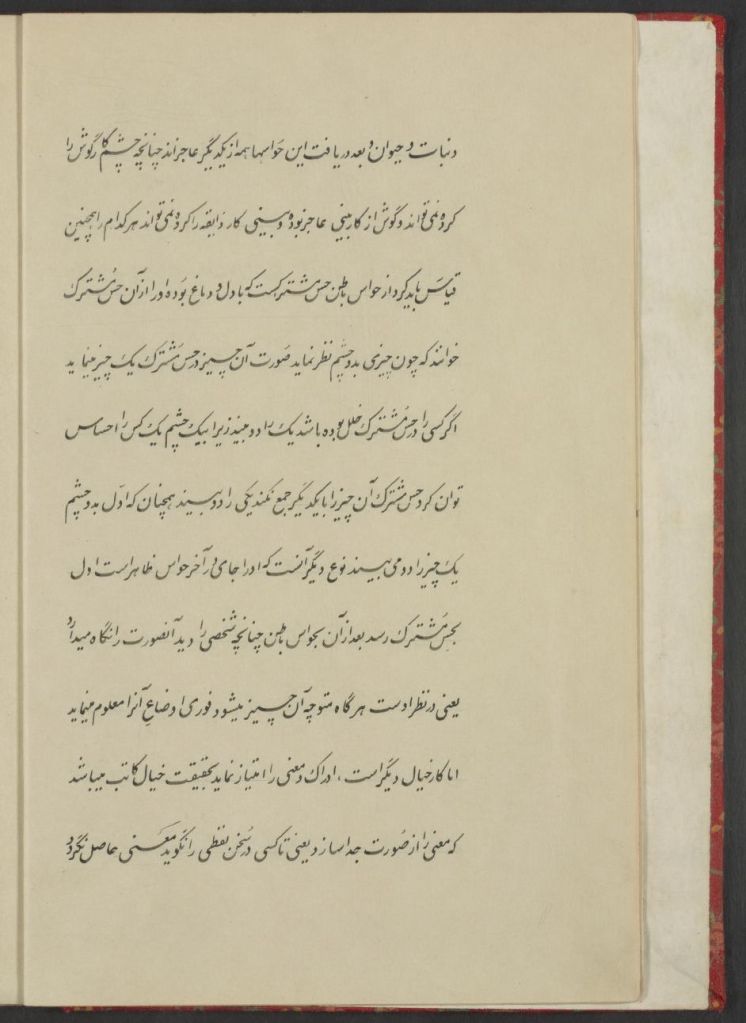 و نبات و حیوان و بعد دریافت این حواسها همه از یکدیگر عاجزاند چنانچه چشم کار گوش را
کرده نمی تواند و گوش از کار بینی عاجز بوده و بینی کار ذایقه را کرده نمی تواند هر کدام را همچنین
قیاس باید کرد از حواس باطن حس مشترکست که با دل و دماغ بوده او را از آن حس مشترک
خوانند که چون چیزی بدو چشم نظر نماید صورت آن چیز در حس مشترک یک چیز مینماید
اگر کسی را در حس مشترک خلل بوده باشد یک را دو میند زیرا بیک چشم یک کس را احساس
توان کرد حس مشترک آن چیز را با یکدیگر جمع نکند یکی را دو بیند همچنان که اول بدو چشم
یک چیز را دو می بیند نوع دیگر آنست که او را جای در آخر حواس ظاهر است اول
بحس مشترک رسد بعد از آن بحواس باطن چنانچه شخصی را دید آنصورت را نگاه میدارد
یعنی در نظر اوست هر گاه متوجه آن چیز میشود فوری اوضاع آنرا معلوم مینماید
اما کار خیال دیگر است، ادراک و معنی را امتیاز نماید بحقیقت خیال کاتب میباشد
که معنی را از صورت جدا سازد یعنی تا کسی در سخن لفظی را نگوید معنی حاصل نگردد